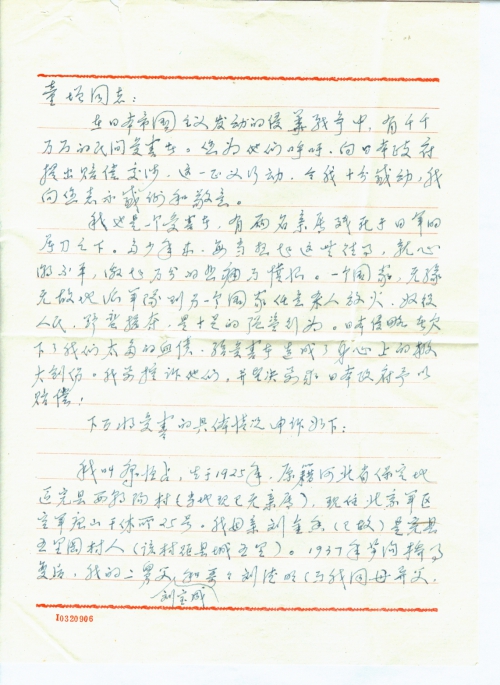 童增同志：
在日本帝国主义发动的侵华战争中，有千千
万万的民间受害者。您为他们呼吁，向日本政府
提出赔偿交涉，这一正义行动，令我十分感动，我
向您表示感谢和敬意。
我也是一个受害者，有两名亲属残死于日军的
屠刀之下。多少年来，每当想起这些往事，就心
潮不平，激起万分的悲痛与愤恨。一个国家，无缘
无故地派军队到另一个国家任意杀人放火，奴役
人民，野蛮掠夺，是十足的强盗行为。日本侵略者欠
下了我们太多的血债，给受害者造成了身心上的极
大创伤。我要控诉他们，并坚决要求日本政府予以
赔偿！
下面将受害的具体情况申诉如下：
我叫，生于1925年，原籍河北省保定地
区完县西朝阳村（当地现已无亲属），现住北京军区
空军干休所25号。我母亲刘金（已故）是完县
五里岗村人（该村距县城五里）。1937年芦沟桥事
变后，我的二舅父和哥哥刘（与我同母异父，
刘宝成
10320906